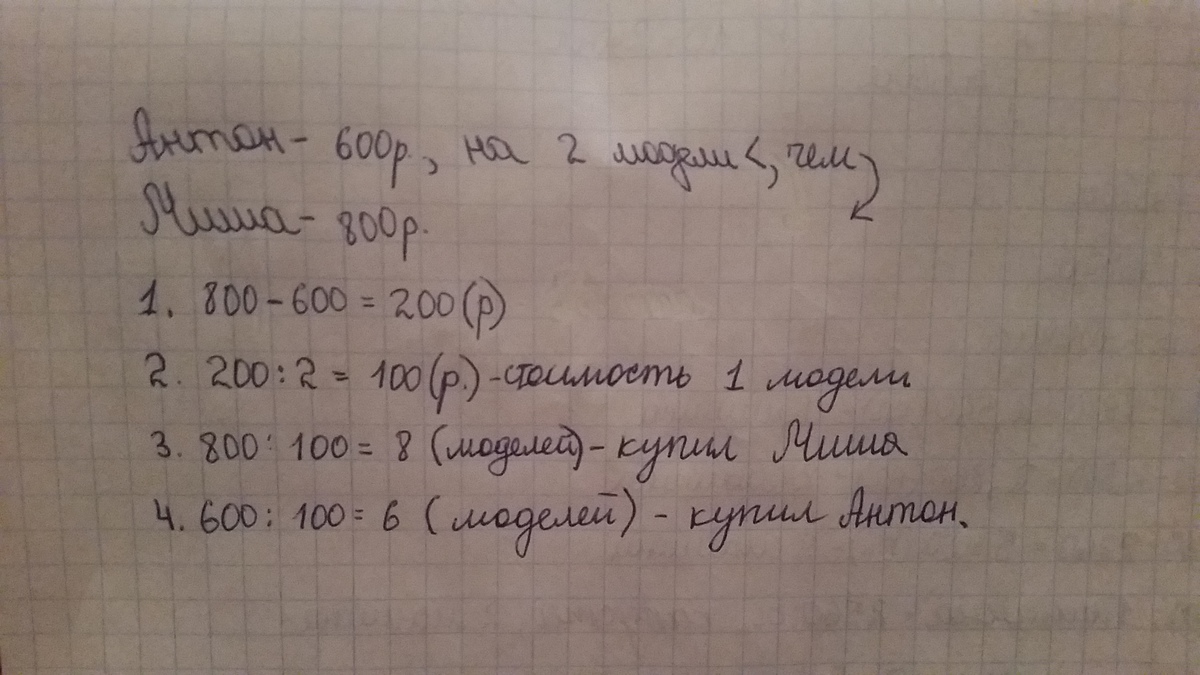 Антон - 600р., на 2 модели <, чем
Миша - 800р.
1. 800 - 600 = 200 (р)
2. 200 : 2 = 100 (р.) - стоимость 1 модели
3. 800 : 100 = 8 (моделей) - купил Миша
4. 600 : 100 = 6 (моделей) - купил Антон.